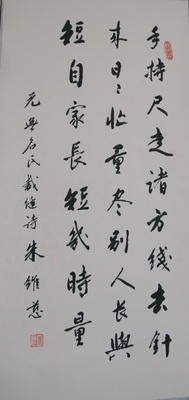 手持尺走諸方綫去針
来日日忙量尽别人長與
短自家長短幾時量
元無名氏裁縫詩 朱維慈